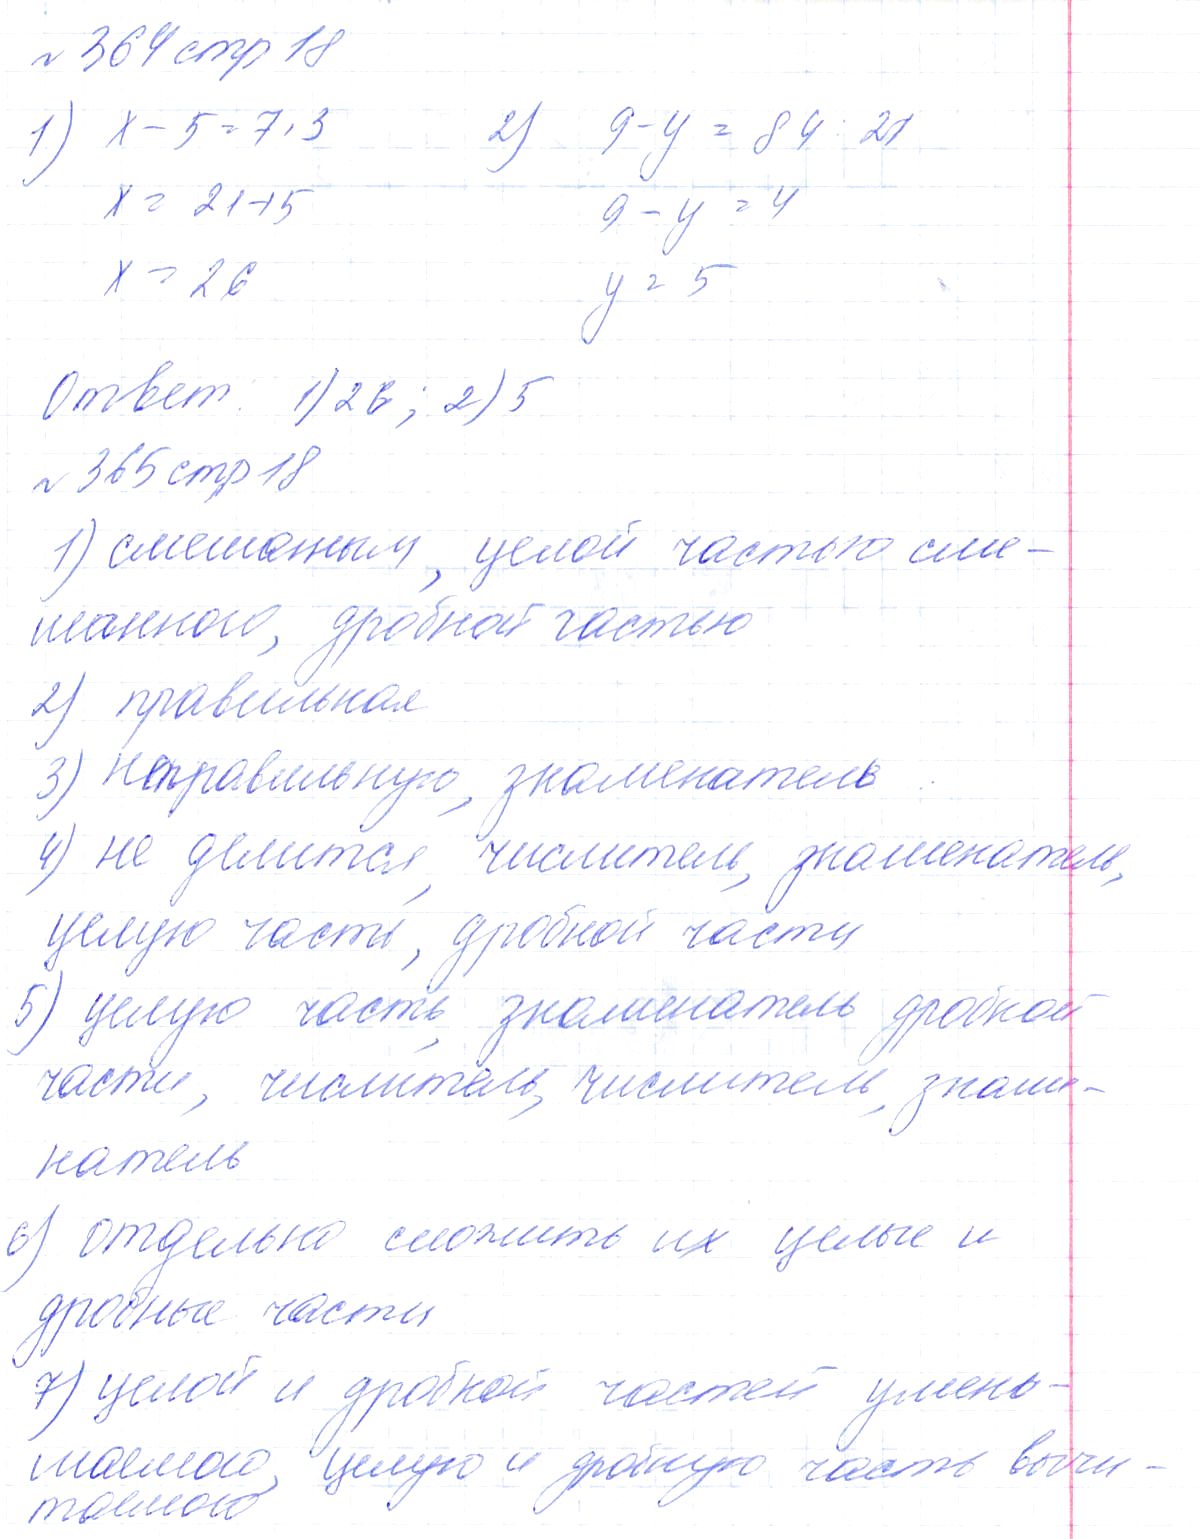 № 364 стр 18
1) x - 5 = 7 · 3 2) 9 - y = 84 : 21
x = 21 + 5 9 - y = 4
x = 26 y = 5
Ответ: 1) 26; 2) 5
№ 365 стр 18
1) смешанным, целой частью сме-
шанного, дробной частью
2) правильная
3) неправильную, знаменатель
4) не делится, числитель, знаменатель,
целую часть, дробной части
5) целую часть, знаменатель дробной
части, числитель, числитель, знаме-
натель
6) отдельно сложить их целые и
дробные части
7) целой и дробной частей умень-
шаемого, целую и дробную часть вычи-
таемого